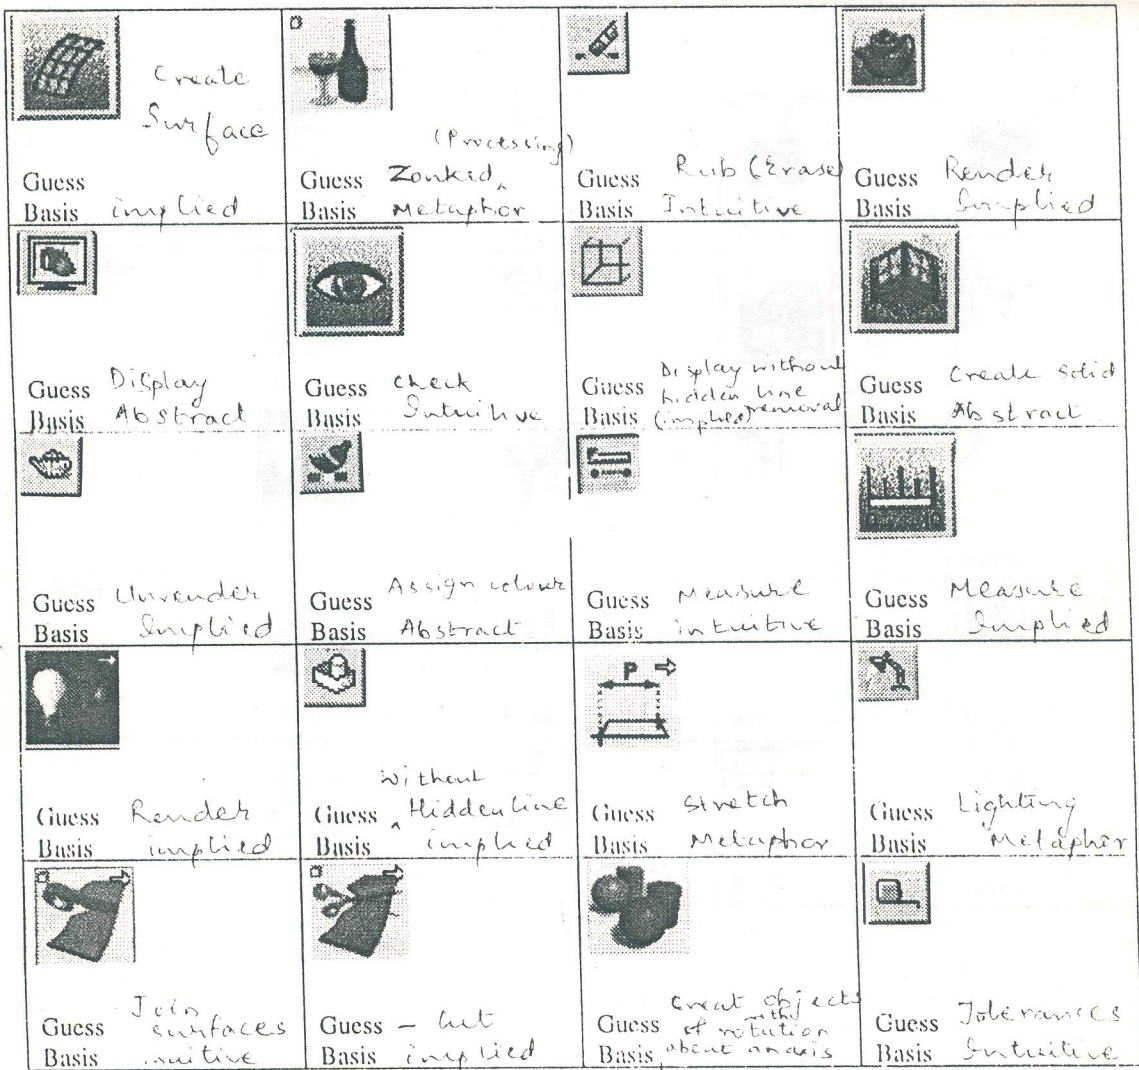 Create
Surface
Guess
Basis implied
(Processing)
Guess Zonked ^
Basis Metaphor
Guess Rub (Erase)
Basis Intuitive
Guess Render
Basis Implied
Guess Display
Basis Abstract
Guess check
Basis Intuitive
Display without
Guess hidden line
Basis (implied) removal
Guess Create solid
Basis Abstract
Guess Unrender
Basis Implied
Guess Assign colour
Basis Abstract
Guess Measure
Basis intuitive
Guess Measure
Basis Implied
Guess Render
Basis implied
without
Guess ^ Hidden line
Basis implied
P
Guess stretch
Basis Metaphor
Guess Lighting
Basis Metapher
Join
Guess surfaces
Basis inuitive
Guess - cut
Basis implied
Creat objects
with
Guess of rotation
Basis about an axis
Guess Tolerances
Basis Intuitive